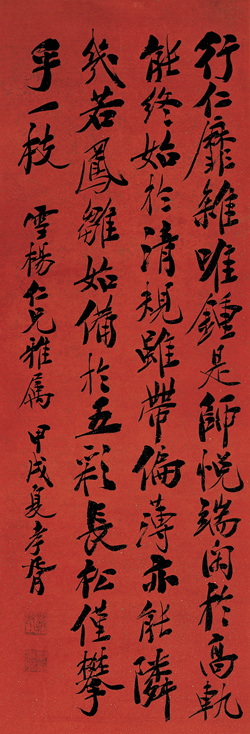 行仁靡雜唯鍾是師悦端閑於高軌
能終始於清規雖帶偏薄亦能隣
幾若鳳雛始備於五彩長松僅攀
乎一枝 雪楊仁兄雅屬 甲戌夏孝胥